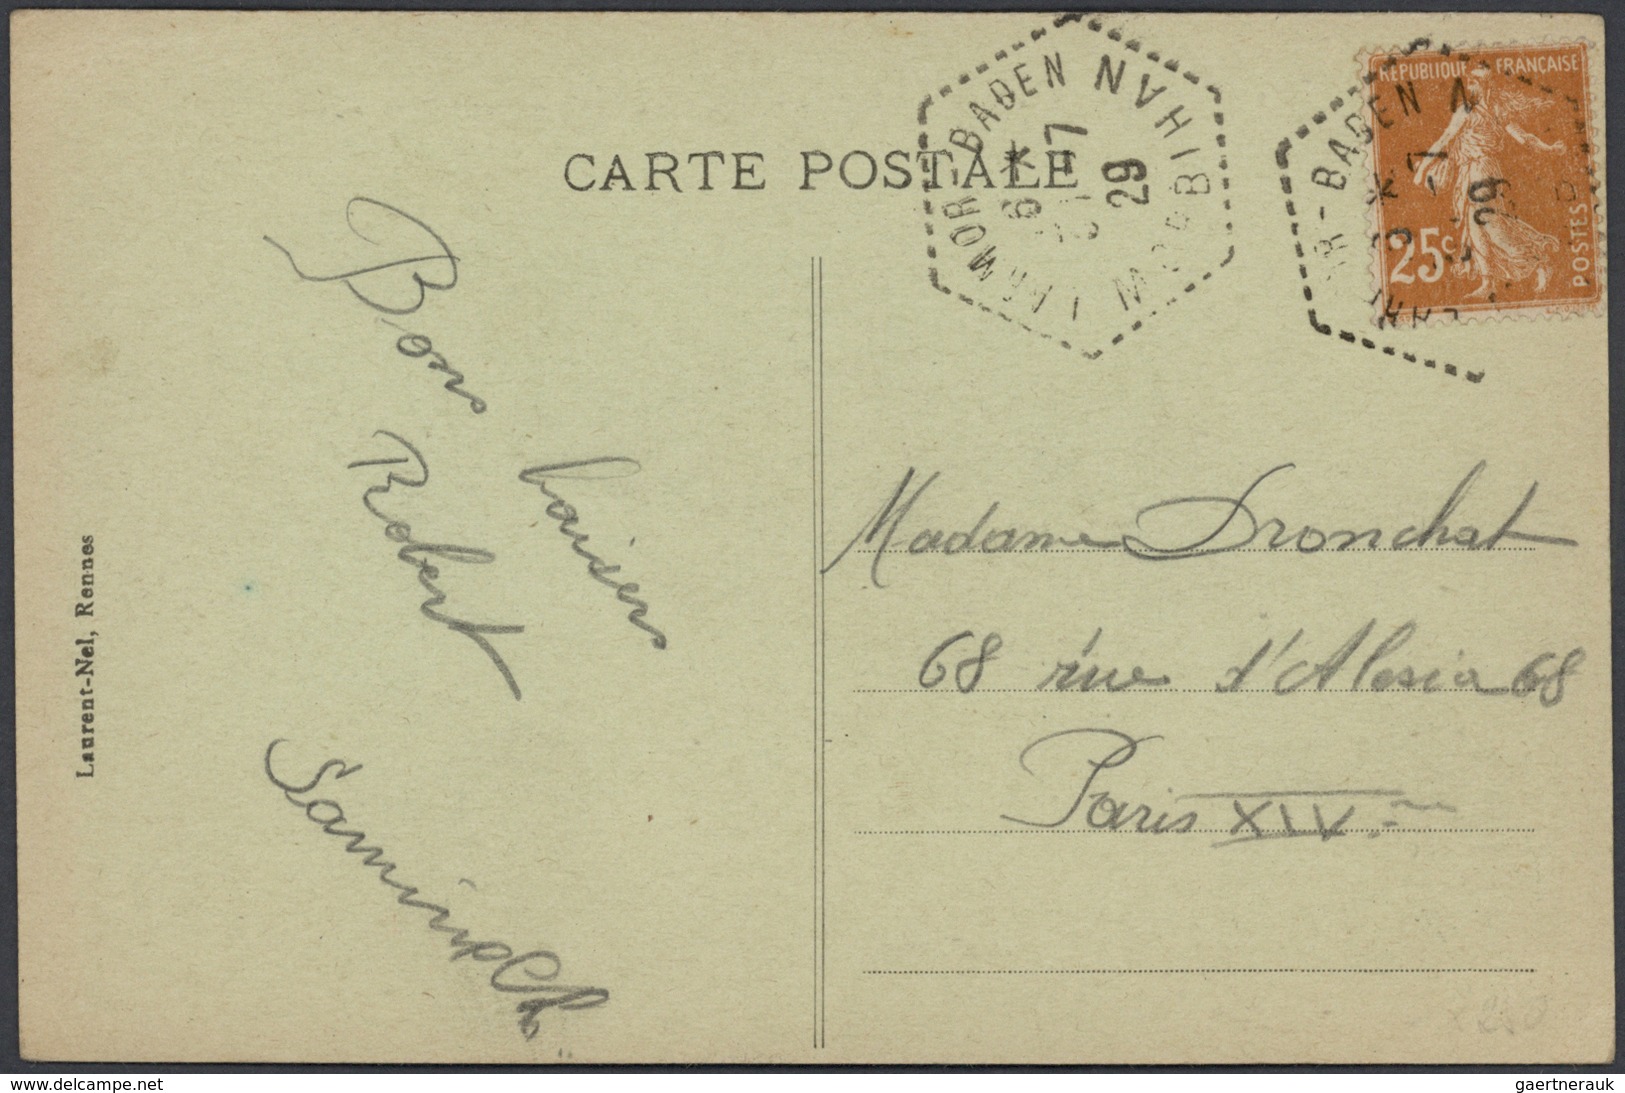 CARTE POSTALE
LARMOR-BADEN MORBIHAN
6 *
31 -7
29
REPUBLIQUE FRANÇAISE
25c
POSTES
BADEN
29
Bons
baisers
Robert
Laurent-Nel, Rennes
Madame Dronchat
68 rue d'Alesia 68
Paris XIVme
delcampe.net
gaertnerauk